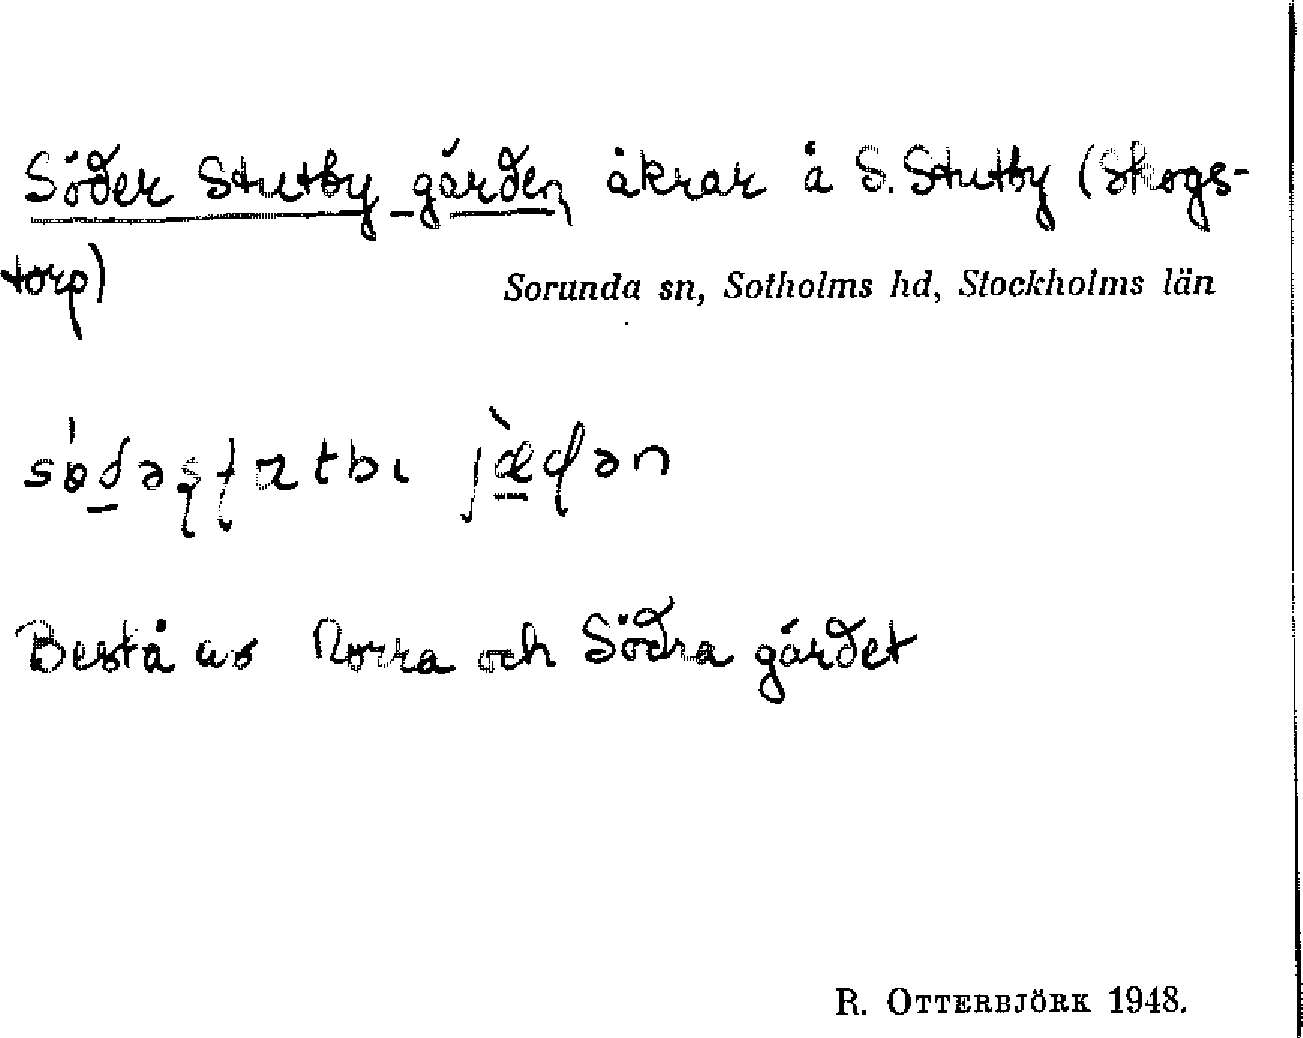 Söder Stutby gärden åkrar å S. Stutby (Skogs-
torp)
Sorunda sn, Sotholms hd, Stockholms län
Bestå av Norra och Södra gärdet
R. OTTERBJÖRK 1948.